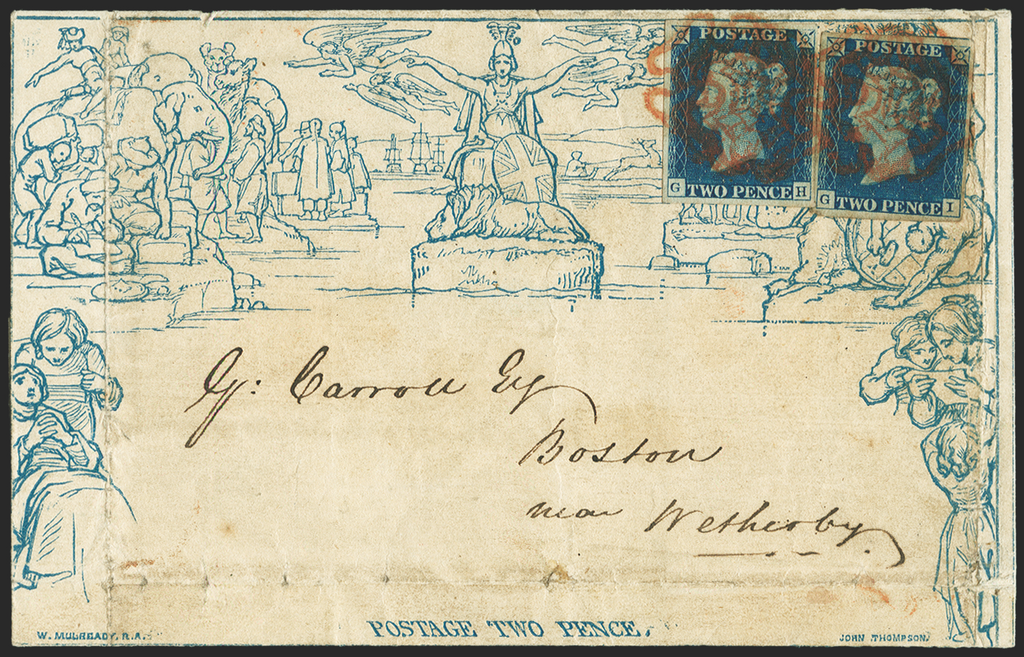 POSTAGE
TWO PENCE
G H
POSTAGE
TWO PENCE
G I
G: Carroll Esq
Boston
near Wetherby.
POSTAGE TWO PENCE.
W. MULREADY. R.A.
JOHN THOMPSON.